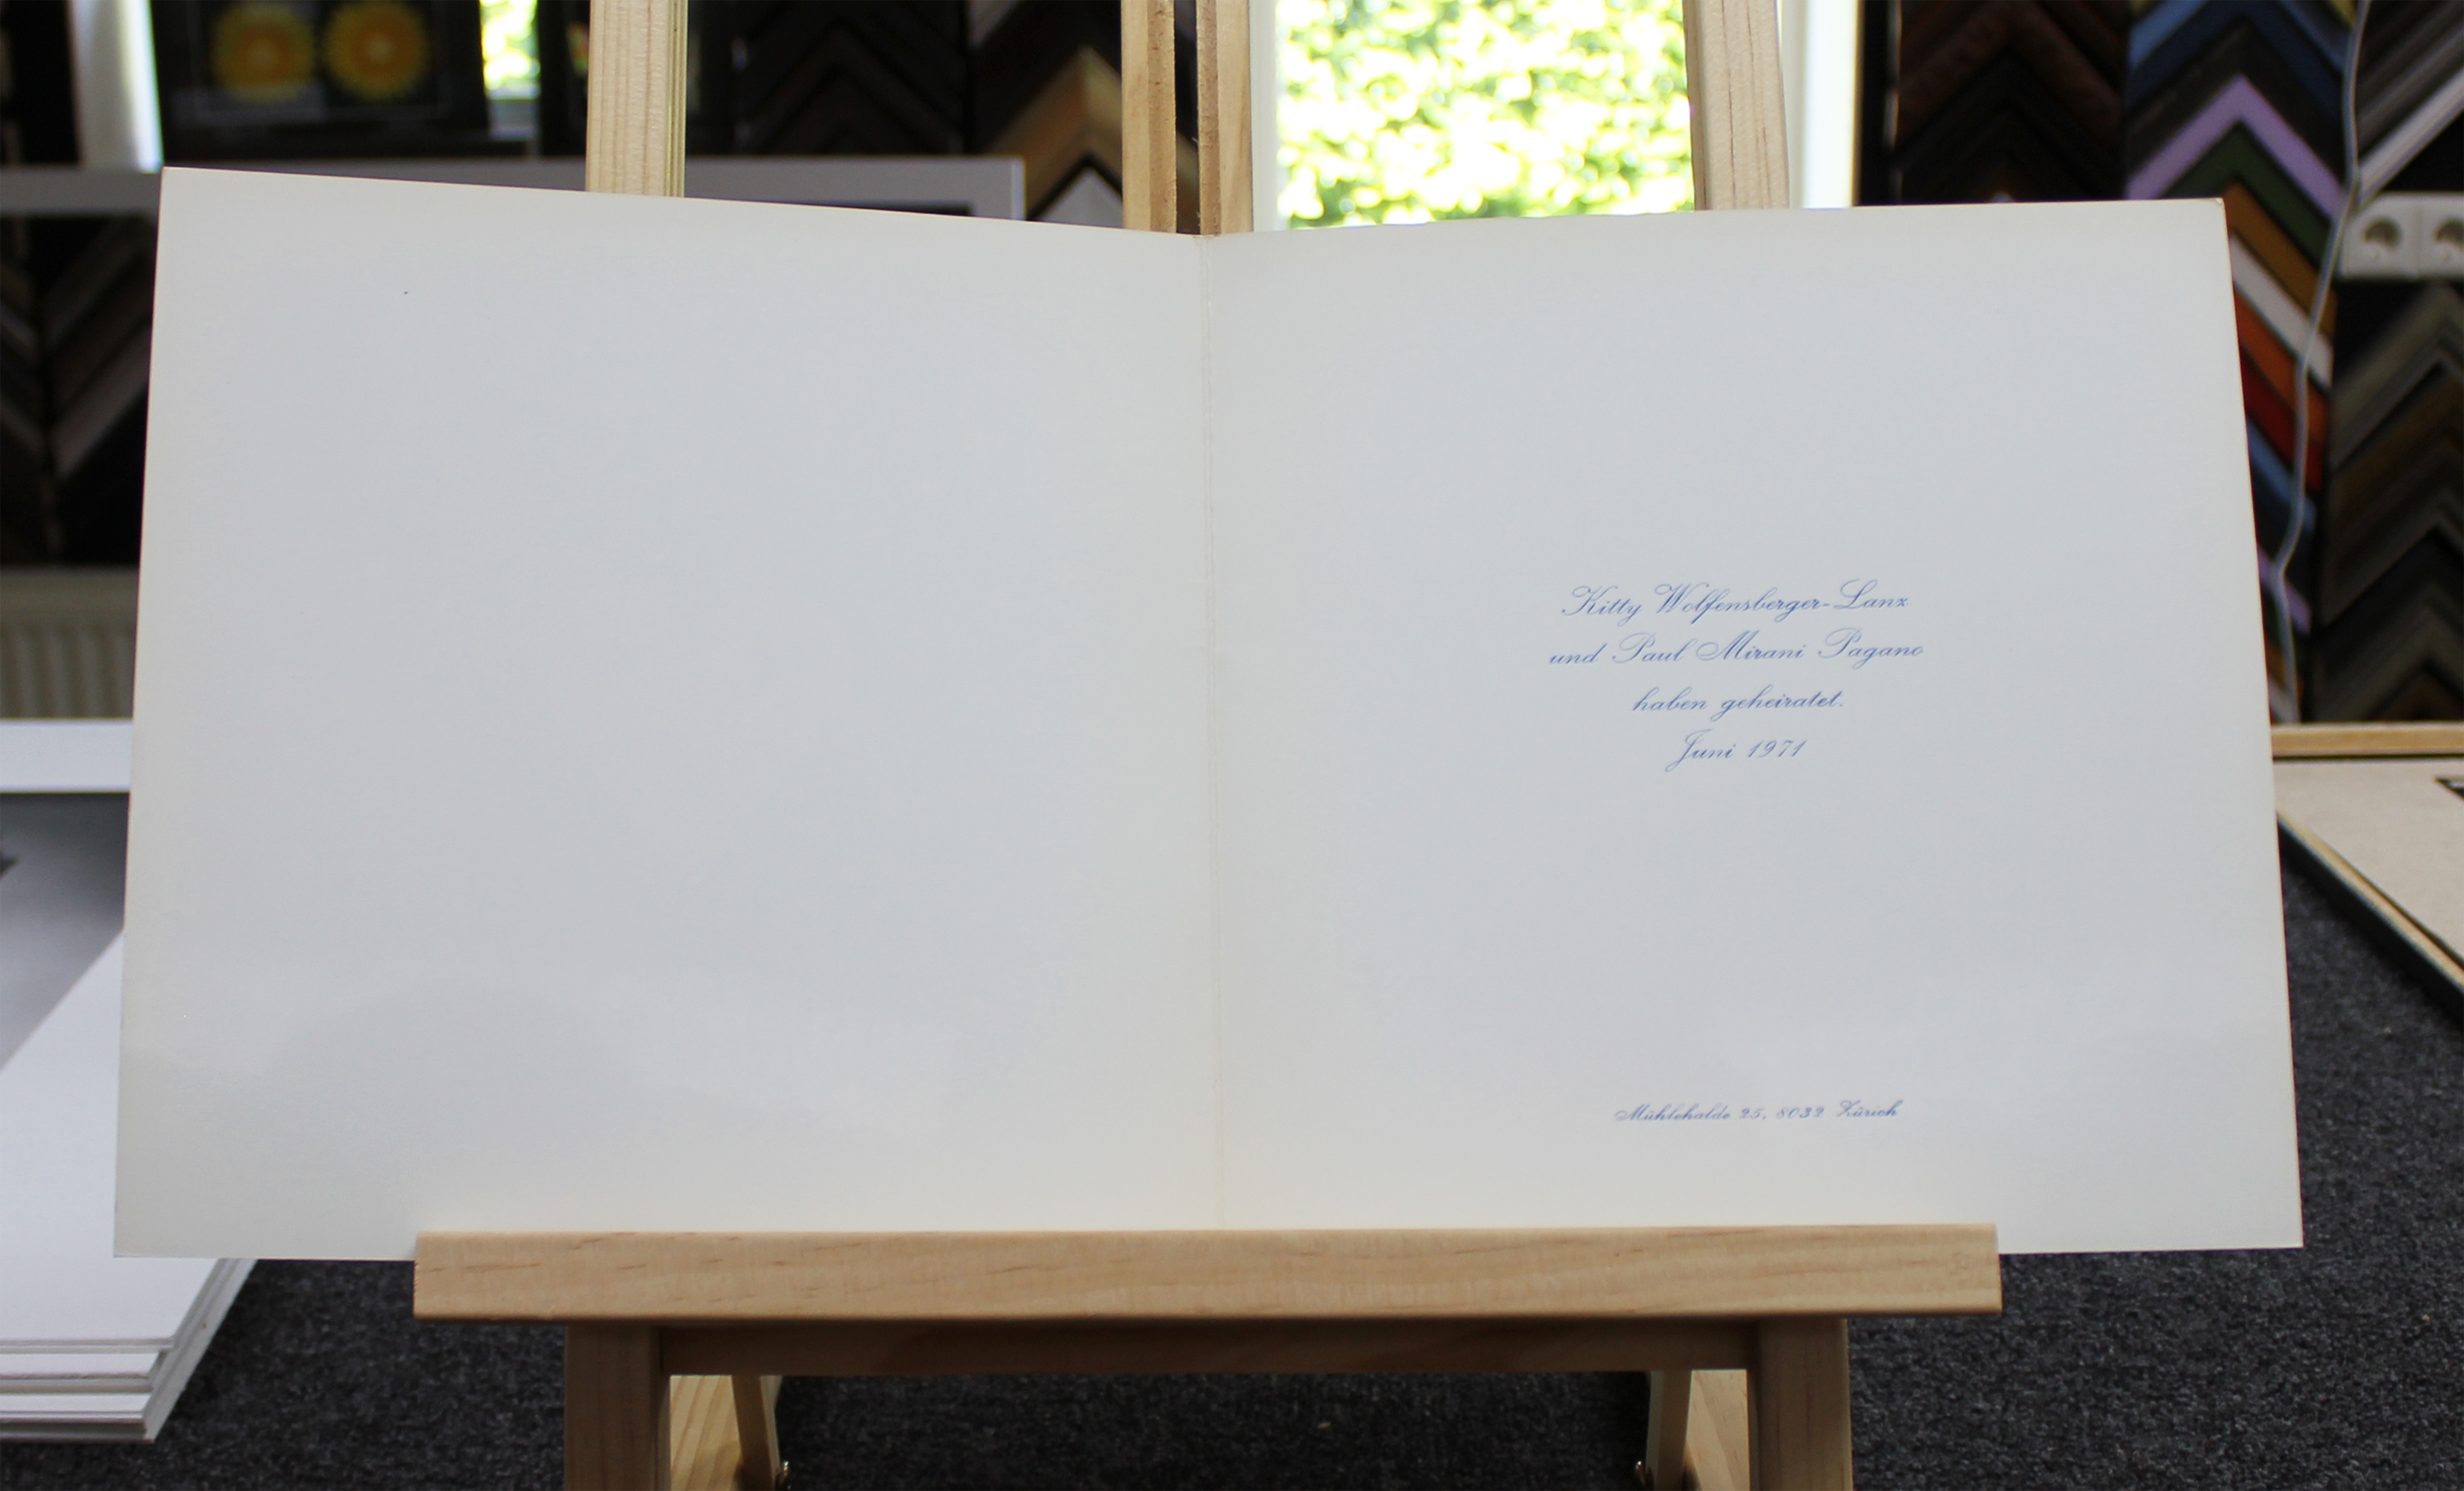 Kitty Wolfensberger-Lanz
und Paul Mirani Pagano
haben geheiratet.
Juni 1971
Mühlehalde 25, 8032 Zürich